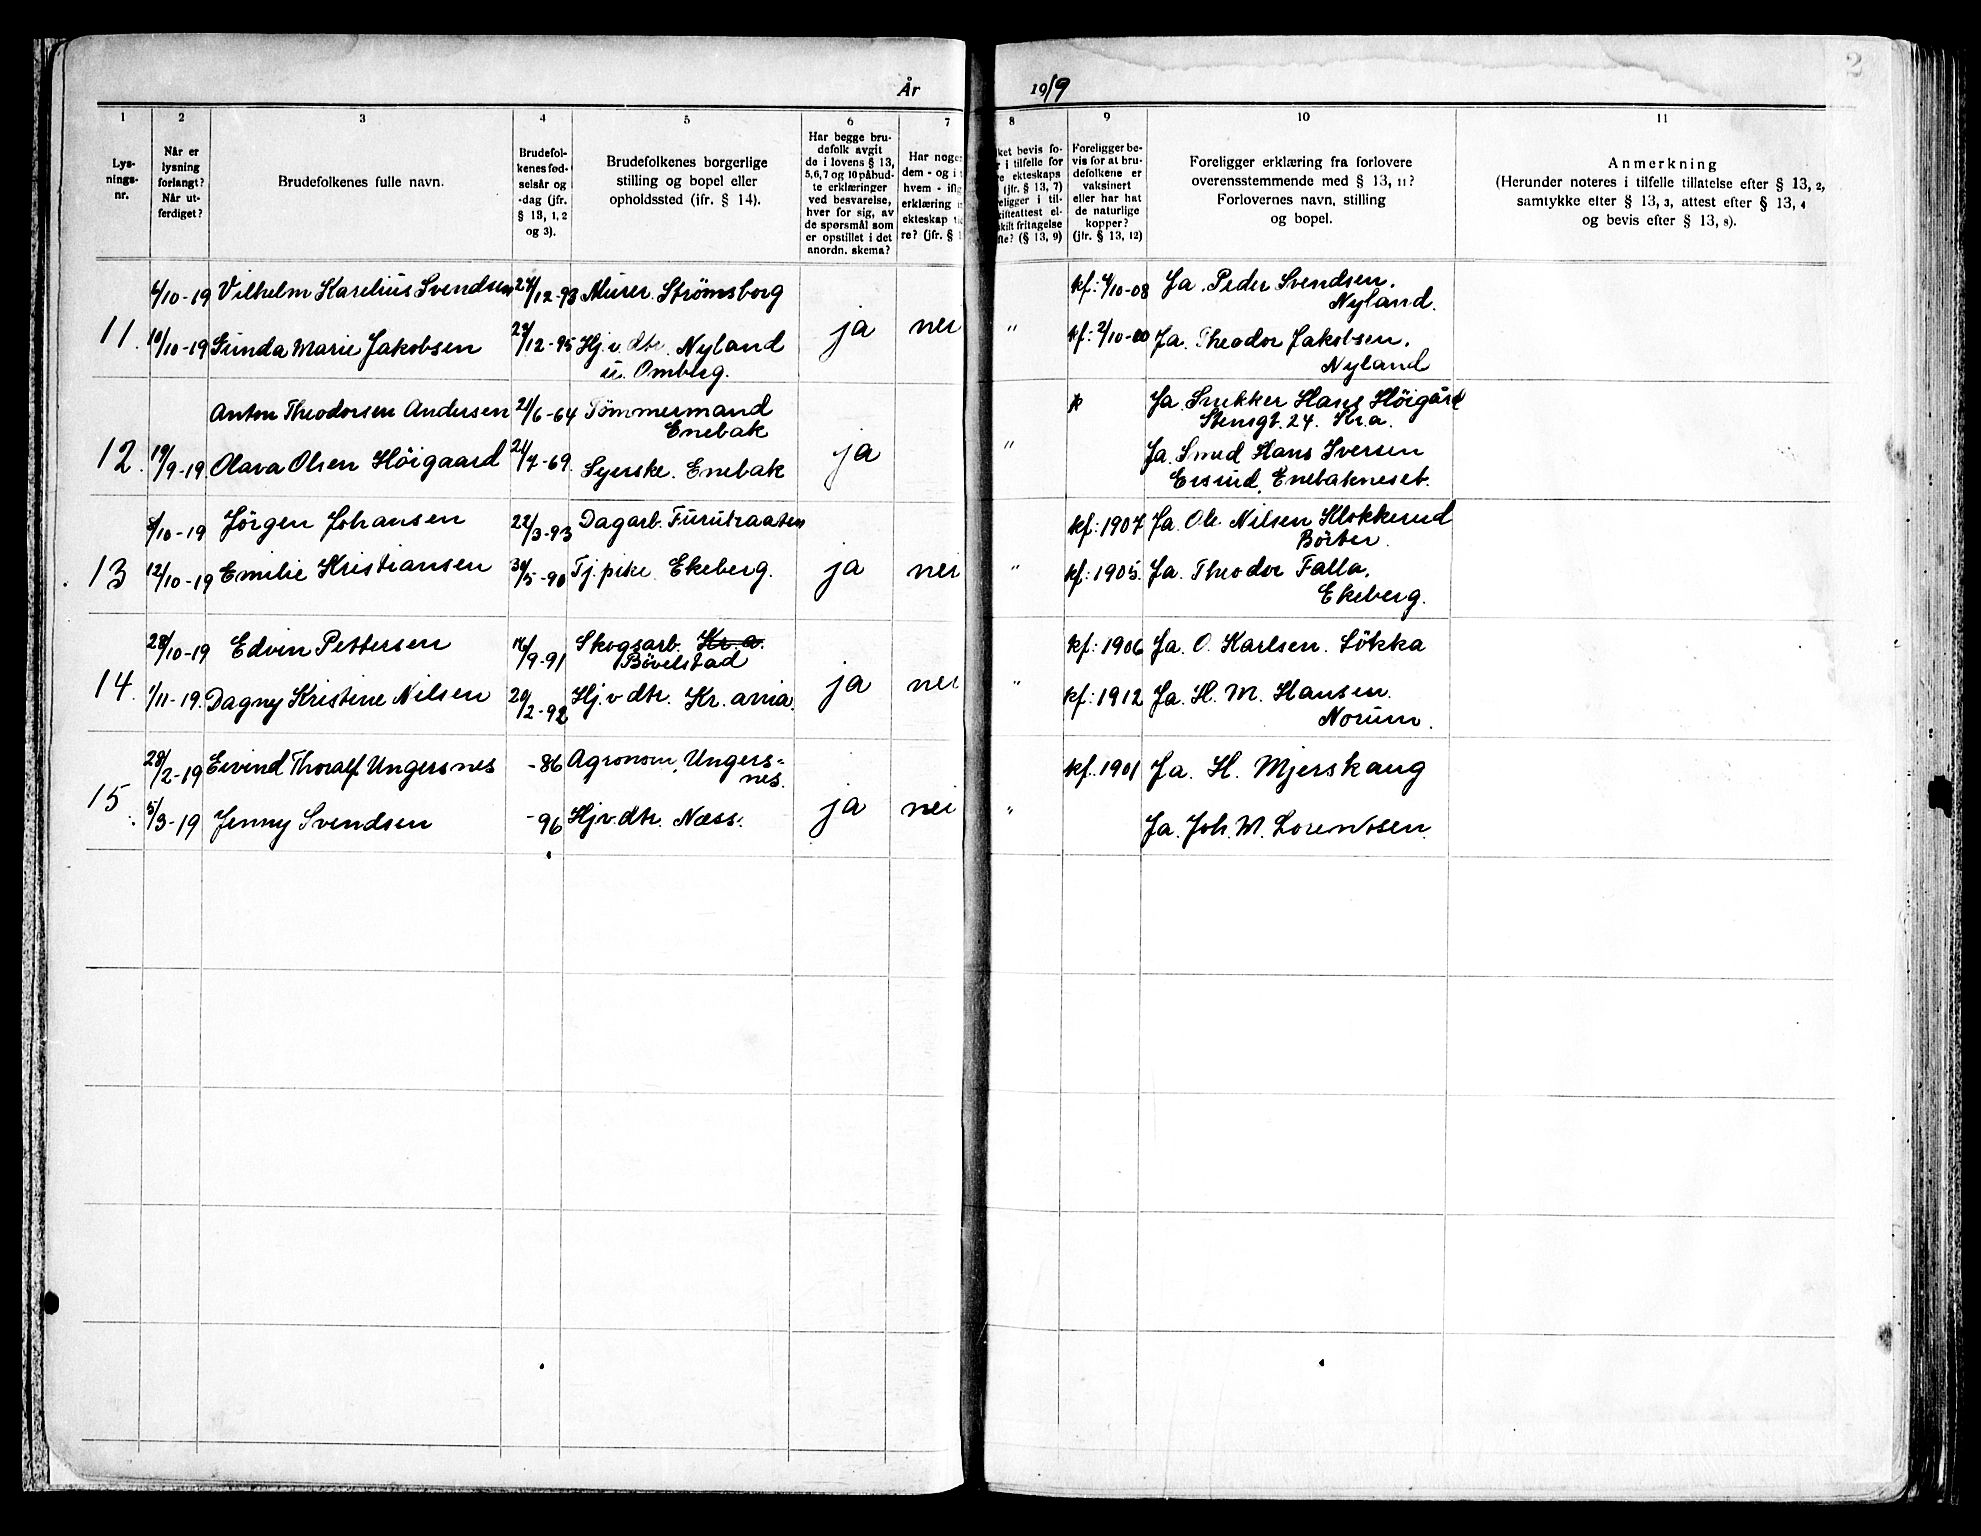 År
1919
2
1
2
3
4
5
6
7
8
9
10
11
Lys-
nings-
nr.
Når er
lysning
forlangt?
Når ut-
ferdiget?
Brudefolkenes fulle navn.
Brudefol-
kenes fød-
selsår og
-dag (jfr.
§ 13, 1, 2
og 3).
Brudefolkenes borgerlige
stilling og bopel eller
opholdssted (jfr. § 14).
Har begge bru-
defolk avgit
de i lovens § 13,
5,6,7 og 10 påbud-
te erklæringer
ved besvarelse,
hver for sig, av
de spørsmål som
er opstillet i det
anordn. skema?
Har nogen
dem - og i
hvem - ifl
erklæring
ekteskap
re? (jfr. §
ket bevis fo-
r i tilfelle for
e ekteskaps
(jfr. § 13, 7)
religger i til-
skifteattest el-
skilt fritagelse
fte? (§ 13, 9)
Foreligger be-
vis for at bru-
defolkene er
vaksinert
eller har hat
de naturlige
kopper?
(jfr. § 13, 12)
Foreligger erklæring fra forlovere
overensstemmende med § 13, 11?
Forlovernes navn, stilling
og bopel.
Anmerkning
(Herunder noteres i tilfelle tillatelse efter § 13, 2,
samtykke efter § 13, 3, attest efter § 13, 4
og bevis efter § 13, 8).
4/10-19 Vilhelm Karelius Svendsen 27/12-93 Murer. Strømsborg kf: 4/10-08 Ja. Peder Svendsen.
Nyland.
11. 10/10-19 Gunda Marie Jakobsen 27/12-95 Hj.v. dtr. Nyland ja nei " kf: 2/10-00 Ja. Theodor Jakobsen.
u. Omberg. Nyland
Anton Theodorsen Andersen 21/6-64 Tømmermand Ja. Snekker Hans Höigård
Enebak Stensgt. 24. Kr.a.
12. 19/9-19 Olava Olsen Höigaard 21/7-69. Syerske. Enebak ja " Ja. Smed Hans Iversen
Eisrud, Enebakneset.
8/10-19 Jörgen Johansen 22/3-93 Dagarb. Furutraaten kf: 1907 Ja. Ole Nilsen Klokkerud
Börter.
13 12/10-19 Emilie Kristiansen 30/5-90 Tj.pike. Ekeberg. ja nei " kf: 1905. Ja. Theodor Falla.
Ekeberg.
28/10-19 Edvin Pettersen 16/9-91 Skogsarb. Kr.a. kf: 1906 Ja. O. Karlsen. Lökka
Bövelstad
14. 1/11-19. Dagny Kristine Nilsen 20/2-92 Hj.v dtr. Kr.ania. ja nei " kf: 1912 Ja. H. M. Hansen.
Norum.
28/2-19 Eivind Thoralf Ungersnes -86 Agronom, Ungers-
nes. kf. 1901 Ja. H. Mjerskaug
15. 5/3-19 Jenny Svendsen -96 Hjv.dtr. Næss. ja nei " Ja. Joh. W. Lorentsen.